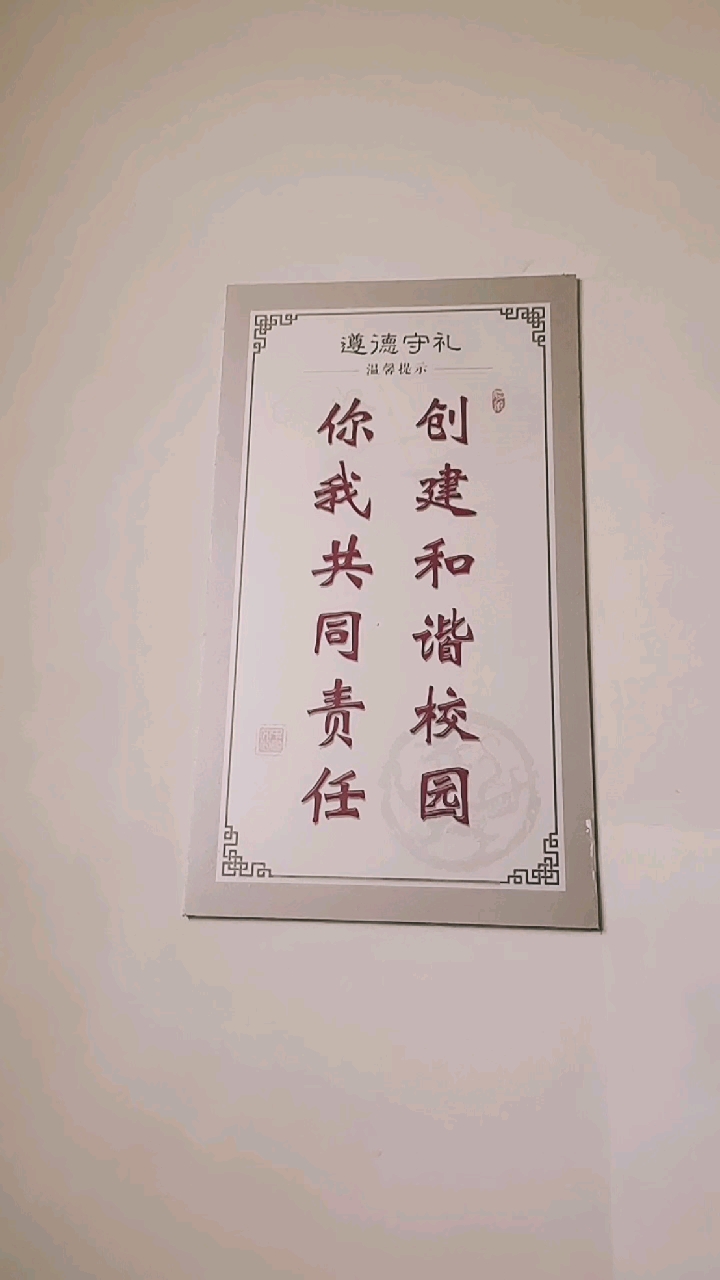 遵德守礼
温馨提示
创建和谐校园
你我共同责任